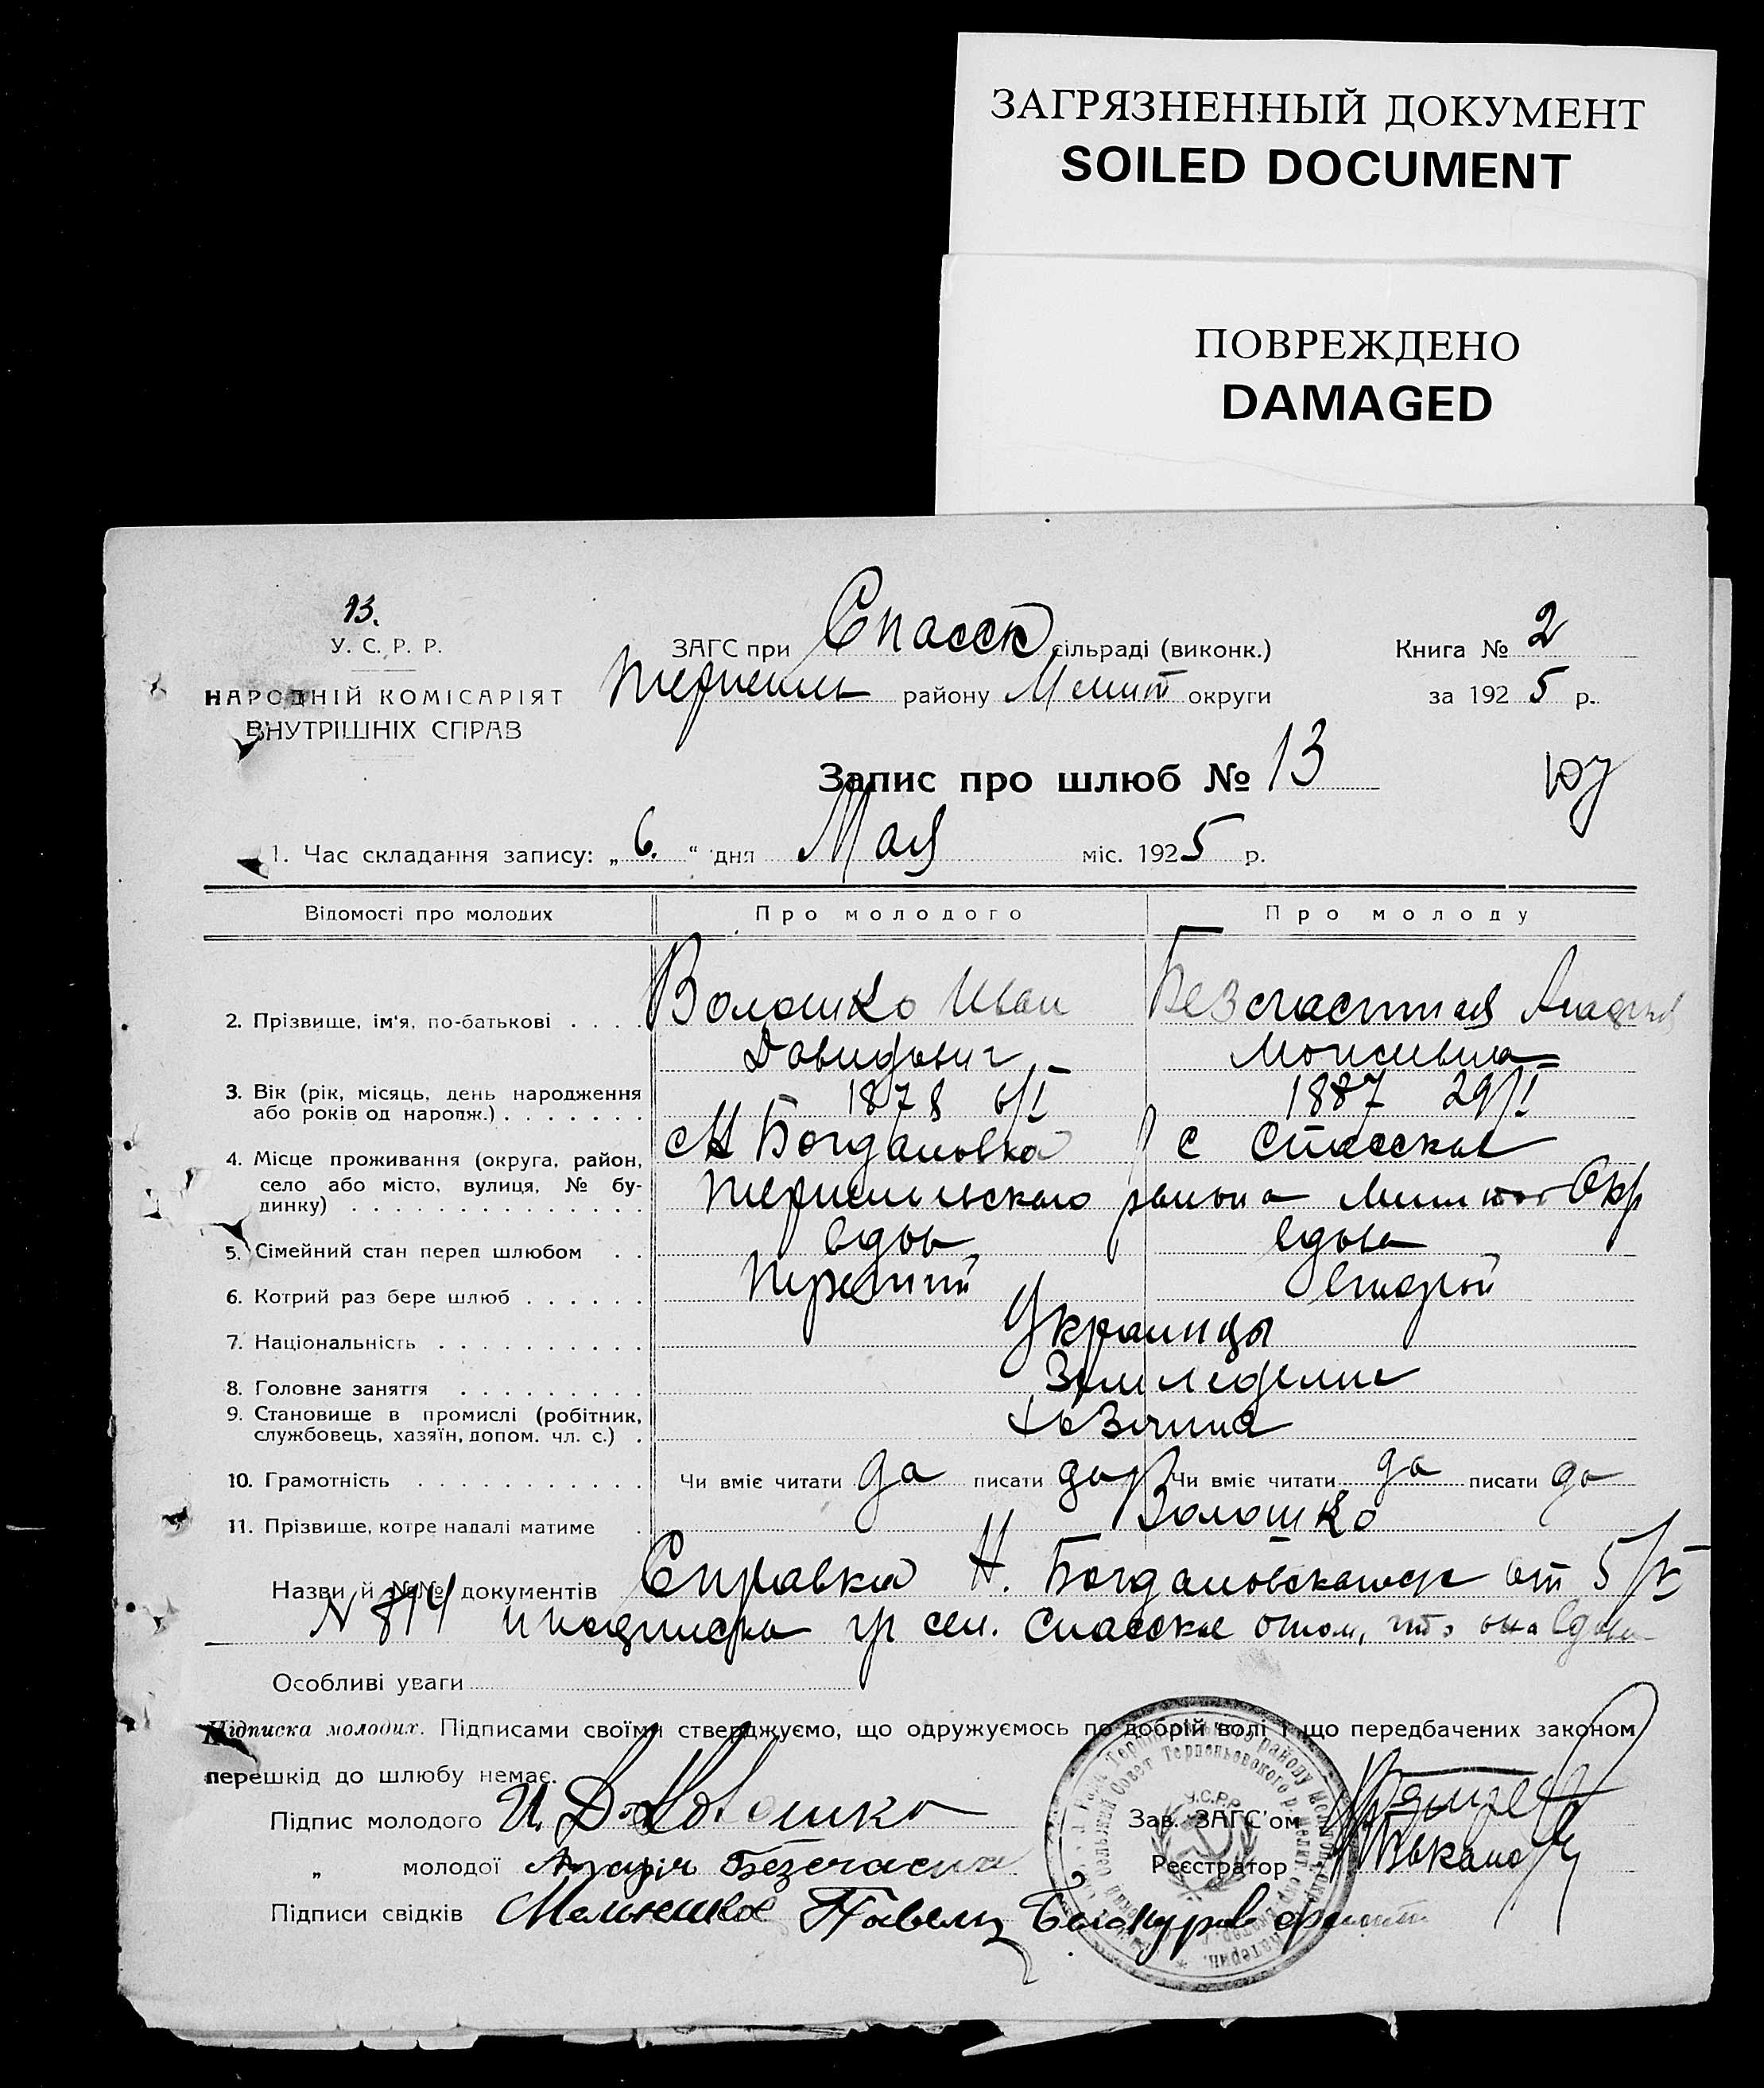 ЗАГРЯЗНЕННЫЙ ДОКУМЕНТ
SOILED DOCUMENT
ПОВРЕЖДЕНО
DAMAGED
13.
У. С. Р. Р.
НАРОДНІЙ КОМІСАРІЯТ
ВНУТРІШНІХ СПРАВ
ЗАГС при Спасск сільраді (виконк.)
Терпень району Мелит округи
Книга № 2
за 1925 р.
Запис про шлюб № 13
1. Час складання запису: „6.“ дня Мая міс. 1925 р.
Відомості про молодих Про молодого Про молоду
2. Прізвище, ім'я, по-батькові . . . . Волошко Иван Безсчастная
Давидович Моисеевна
3. Вік (рік, місяць, день народження або років од народж.) . . . . . . . 1878 6/I 1887 29/I
4. Місце проживання (округа, район, село або місто, вулиця, № будинку) . . . . . . . . . . . . . . Н Богдановка с Спасское
района Окр
5. Сімейний стан перед шлюбом . . вдов вдова
6. Котрий раз бере шлюб . . . . . . второй
7. Національність . . . . . . . . . . Украинцы
8. Головне заняття . . . . . . . . . Земледелие
9. Становище в промислі (робітник, службовець, хазяїн, допом. чл. с.) .
10. Грамотність . . . . . . . . . . . Чи вміє читати да писати да Чи вміє читати да писати да
11. Прізвище, котре надалі матиме . Волошко
Назви й №№ документів Справка Н. от 5/V
N 814 и подписка гр сел. Спасское о том, что она вдова
Особливі уваги
Підписка молодих. Підписами своїми стверджуємо, що одружуємось по добрій волі і що передбачених законом
перешкід до шлюбу немає.
Підпис молодого И. Д. Волошко
Зав. ЗАГС'ом
„ молодої
Реєстратор
Підписи свідків Павел
У.С.Р.Р.